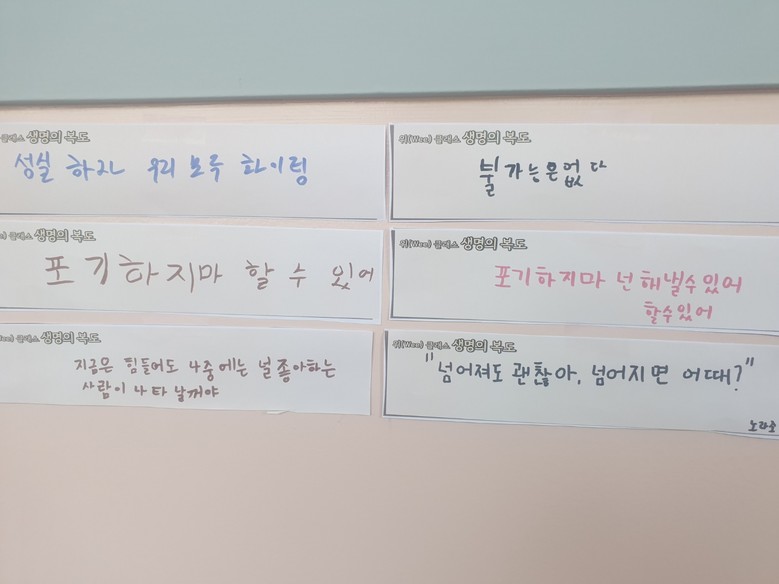 클래스 생명의 복도
성실 하자 우리 모두 화이링
위(Wee) 클래스 생명의 복도
불가능은없다
클래스 생명의 복도
포기하지마 할 수 있어
위(Wee) 클래스 생명의 복도
포기하지마 넌 해낼수있어
할수있어
클래스 생명의 복도
지금은 힘들어도 나중에는 널좋아하는
사람이 나타날꺼야
위(Wee) 클래스 생명의 복도
"넘어져도 괜찮아, 넘어지면 어때?"
노라조